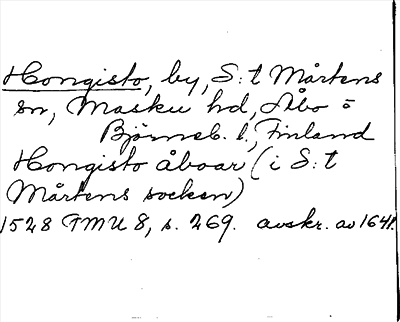 Hongisto, by, S:t Mårtens
sn, Masku hd, Åbo o
Björneb. l., Finland
Hongisto åboar (i S:t
Mårtens socken)
1528 FMU 8, s. 269. avskr. av 1641.